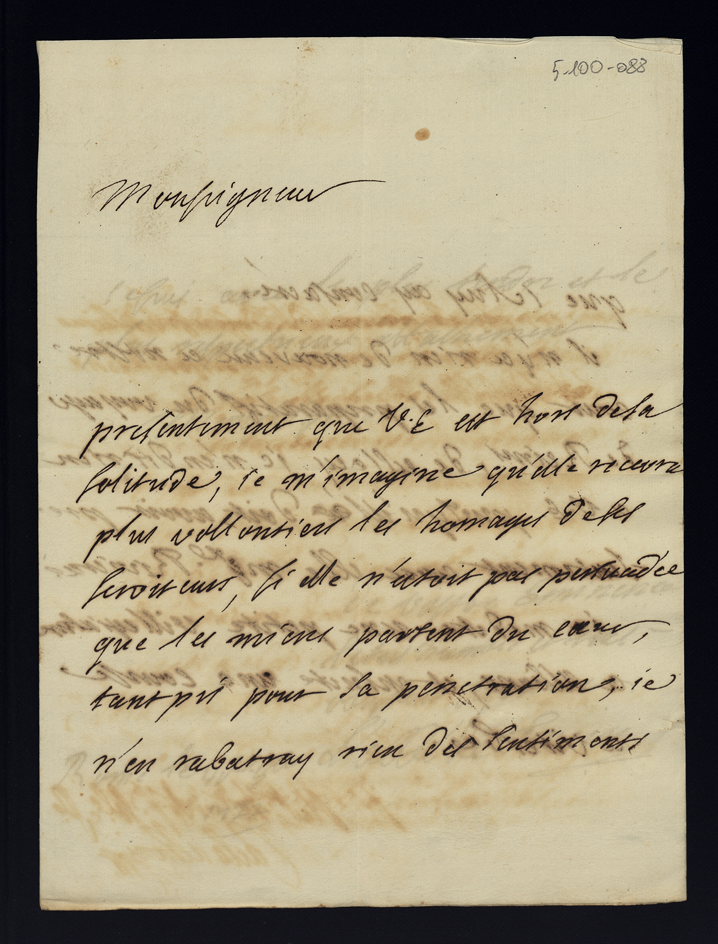 5-100-088
Monsigneur
presentement que V.E est hors de sa
solitude, ie m'imagine qu'elle recevra
plus vollontiers les homages de ses
serviteurs, si elle n'etoit pas persuadée
que les miens partent du cœur,
tant pis pour sa penetration, ie
n'en rabatray rien des sentiments